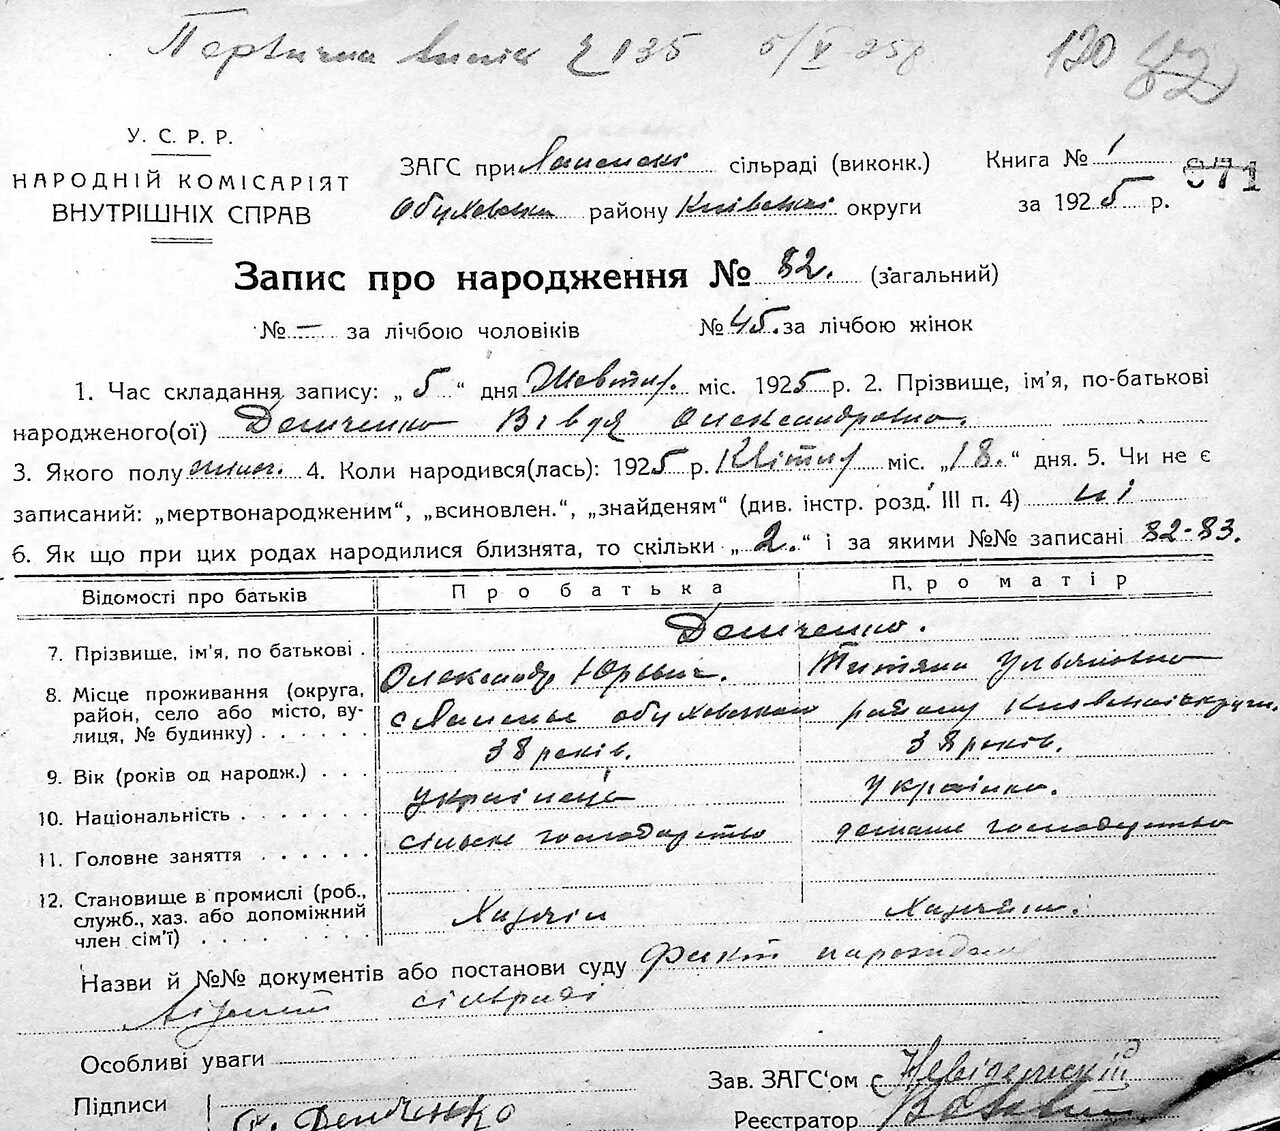 Первична выпис 135 5/V 25 р 120 82
У. С. Р. Р.
НАРОДНІЙ КОМІСАРІЯТ
ВНУТРІШНІХ СПРАВ
ЗАГС при сільраді (виконк.)
Обуховськ району Київської округи
Книга № 1
за 1925 р.
871
Запис про народження № 82. (загальний)
№ — за лічбою чоловіків № 45. за лічбою жінок
1. Час складання запису: „5“ дня Жовтня. міс. 1925 р. 2. Прізвище, ім'я, по-батькові
народженого(ої) Демченко Вівдя Олександровна.
3. Якого полу жіноч. 4. Коли народився(лась): 1925 р. Квітня міс. „18.“ дня. 5. Чи не є
записаний: „мертвонародженим“, „всиновлен.“, „знайденям“ (див. інстр. розд. III п. 4) ні
6. Як що при цих родах народилися близнята, то скільки „2.“ і за якими №№ записані 82-83.
Відомості про батьків Про батька Про матір
Демченко.
7. Прізвище, ім'я, по батькові . Олександр Юрьевич. Титяна Ульяновна
8. Місце проживання (округа,
район, село або місто, ву-
лиця, № будинку) . . . . . . с обуховского району Киевскої округи.
9. Вік (років од народж.) . . . 38 років. 38 років.
10. Національність . . . . . . . українець українка.
11. Головне заняття . . . . . . сільске господарство домашне господарство
12. Становище в промислі (роб.,
служб., хаз. або допоміжний
член сім'ї) . . . . . . . . Хазяїн Хазяйка.
Назви й №№ документів або постанови суду Факт народження
відомий сільраді
Особливі уваги
Зав. ЗАГС'ом
Підписи Демченко
Реєстратор